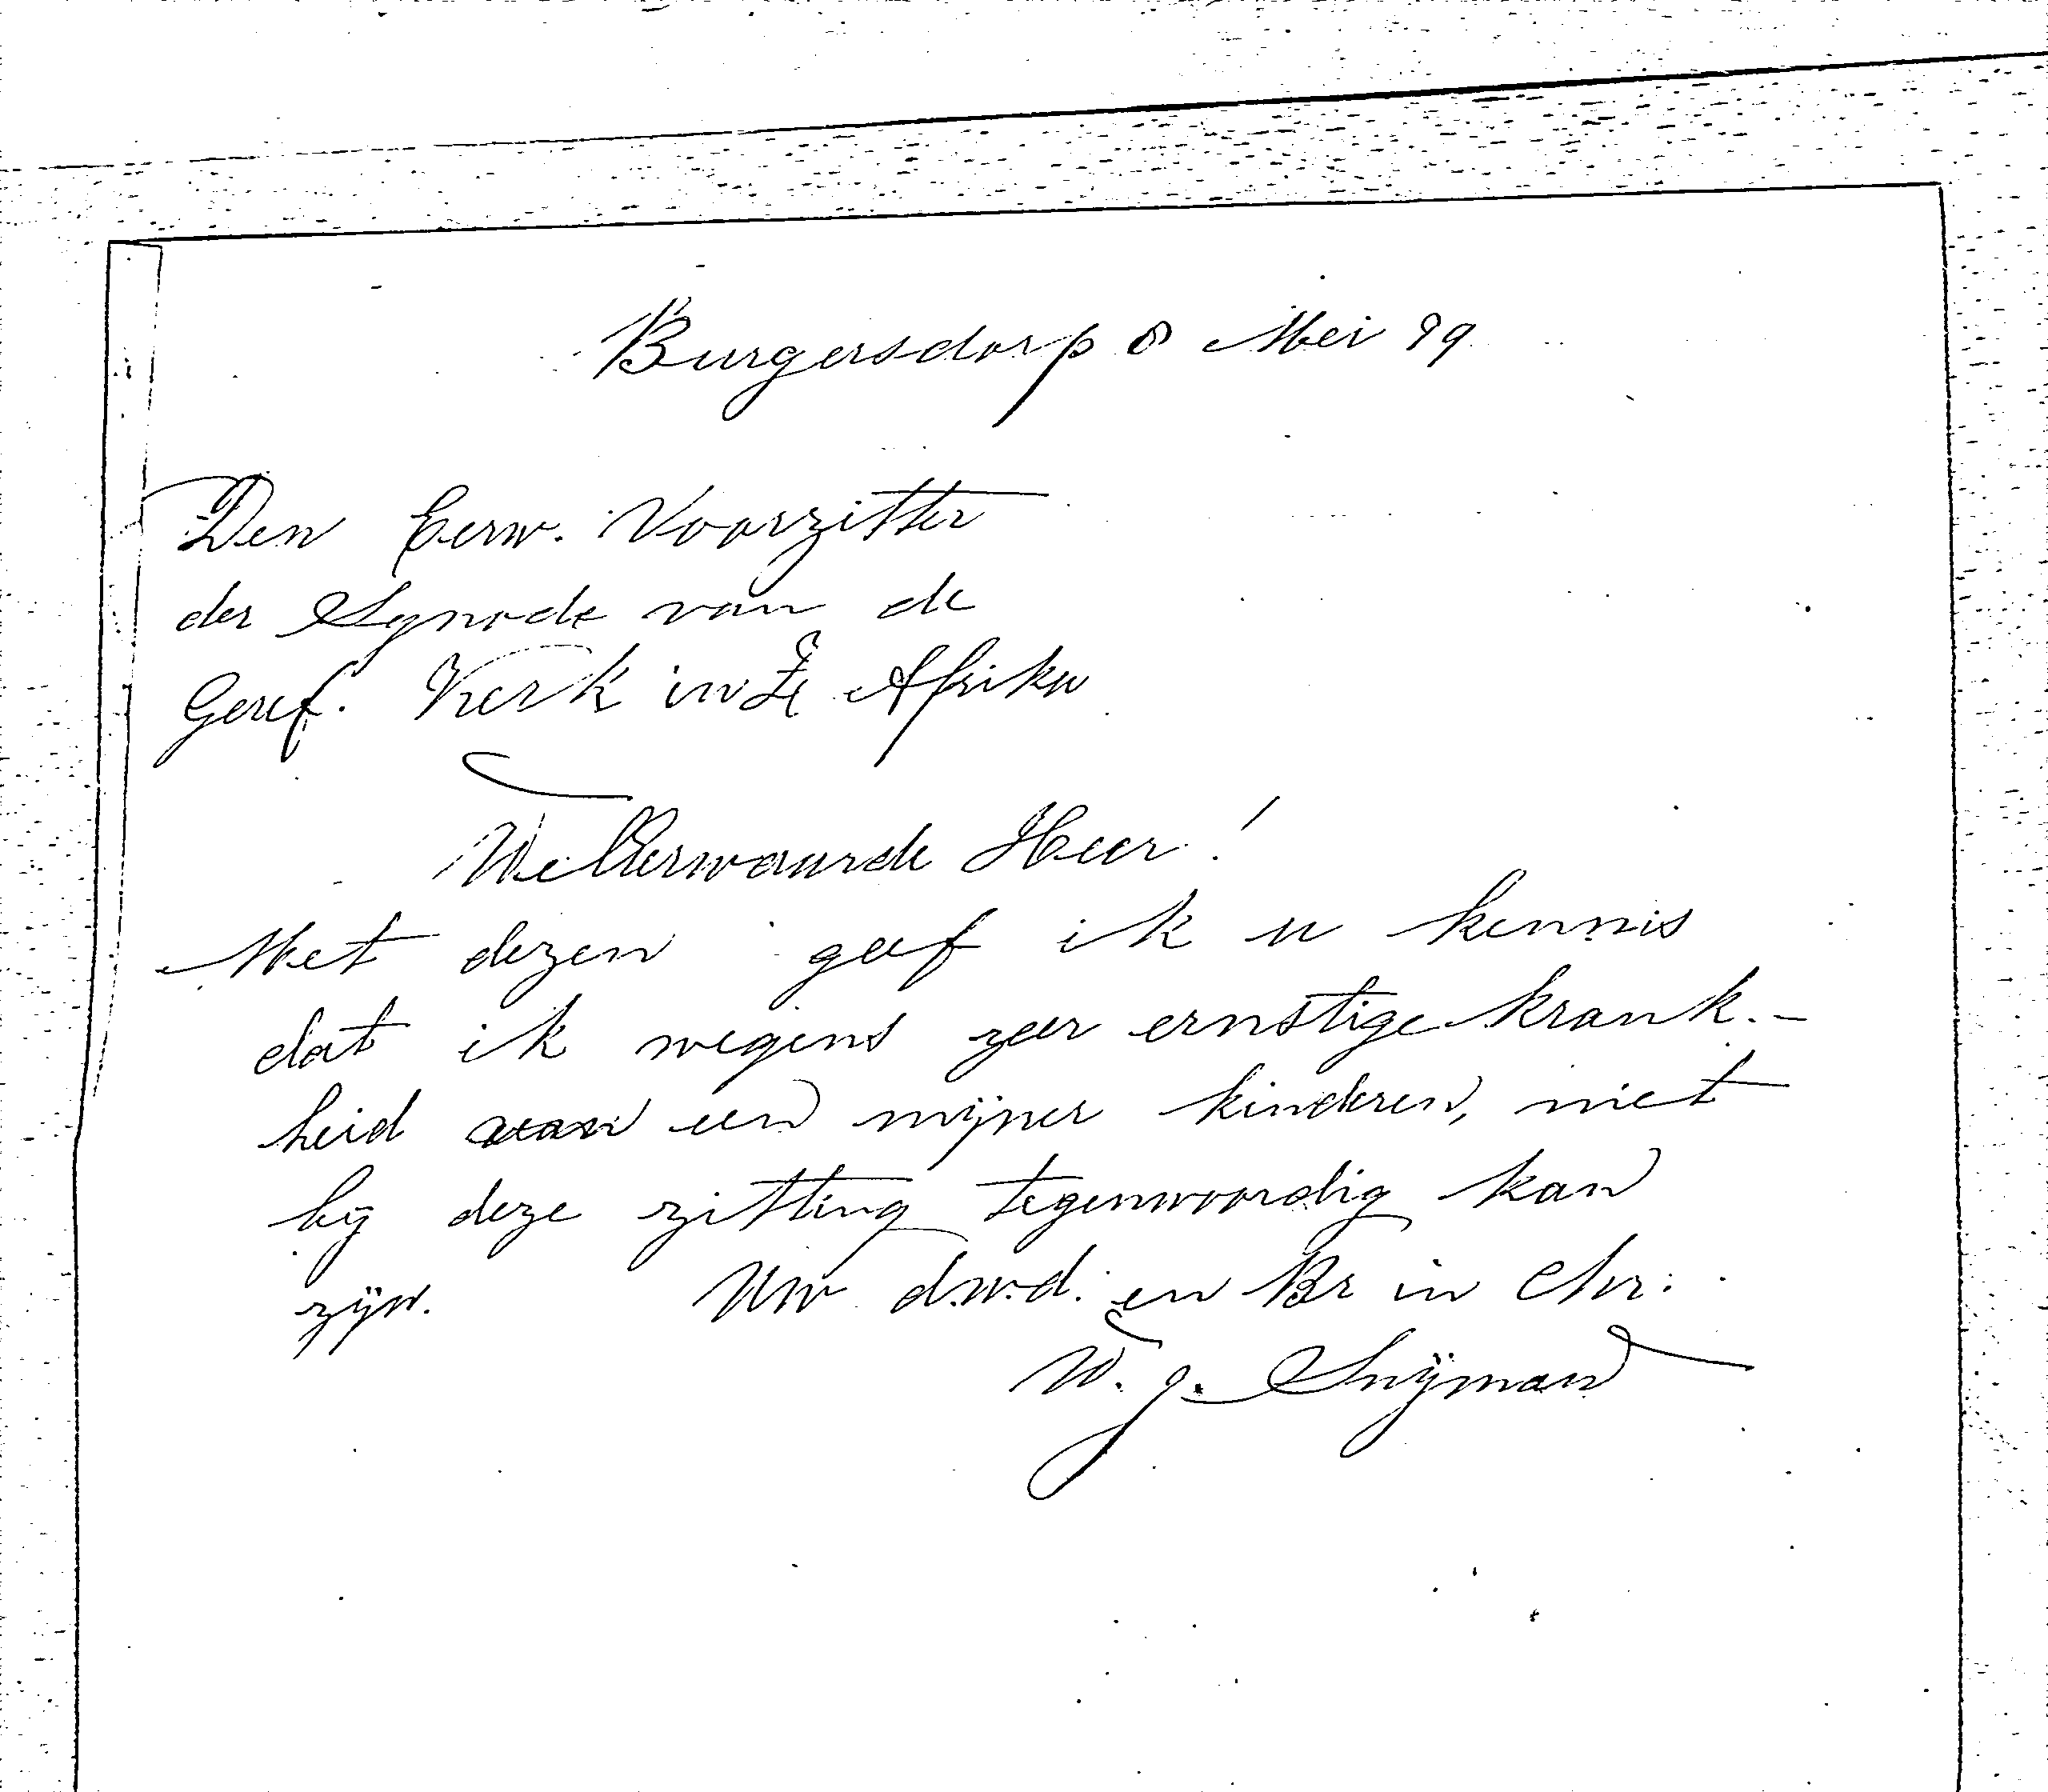 Burgersdorp 8 Mei 99
Den Eerw. Voorzitter
der Synode van de
Geref. Kerk in Z. Afrika
WelEerwaarde Heer!
Met dezen geef ik u kennis
dat ik wegens zeer ernstige krank-
heid van een mijner kinderen, niet
bij deze zitting tegenwoordig kan
zijn. Uw d.w.d. en Br in Chr:
W. J. Snÿman